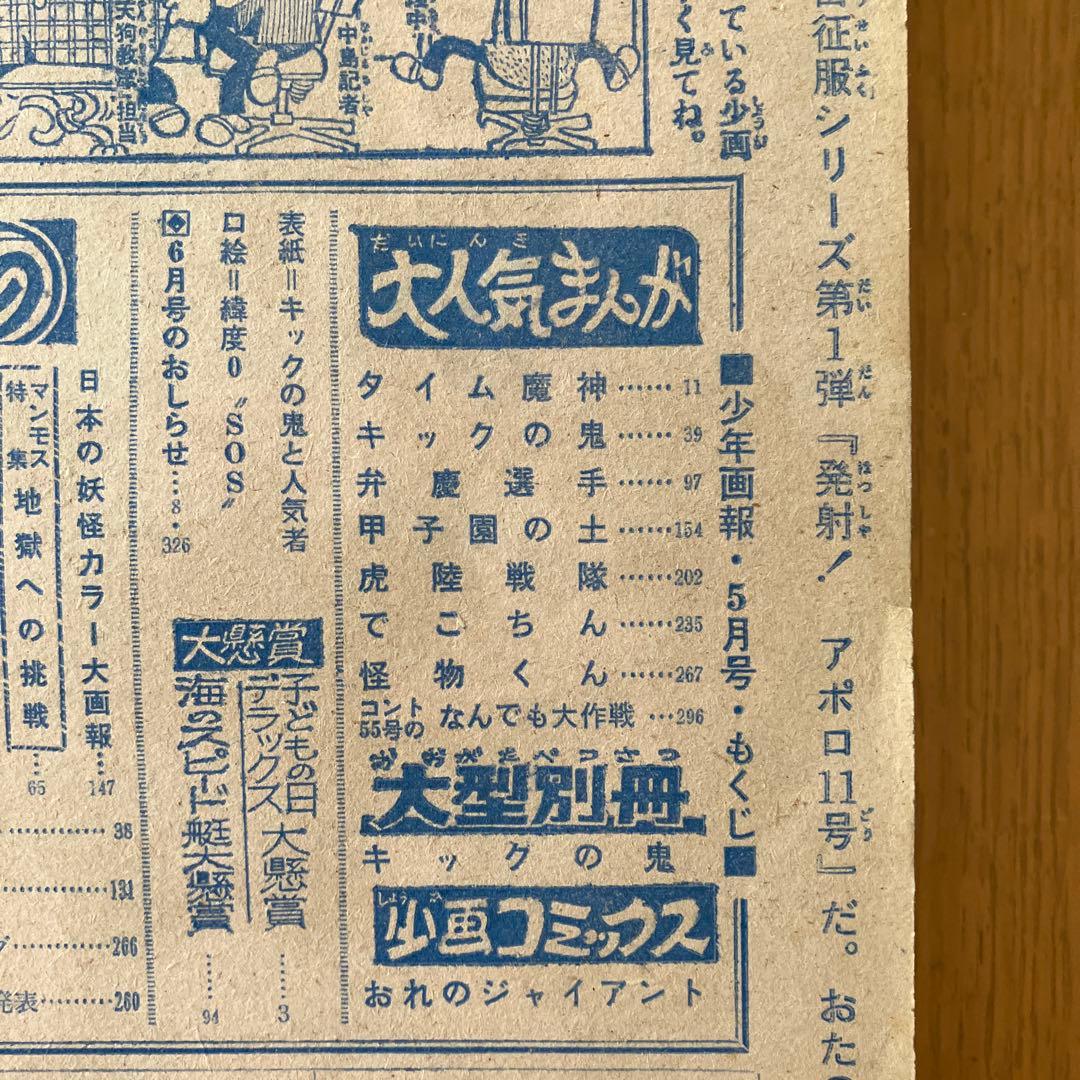 宙征服シリーズ第1弾『発射！アポロ11号』だ。おたの
ている少画
く見てね。
中!!
中島記者
天狗教室担当
■少年画報・5月号・もくじ■
だいにんき
大人気まんが
タイム魔神……11
キックの鬼……39
弁慶選手……97
甲子園の土……154
虎陸戦隊……202
でこちん……235
怪物くん……267
コント55号のなんでも大作戦…296
おおがたべっさつ
大型別冊
キックの鬼
しょうが
少画コミックス
おれのジャイアント
表紙＝キックの鬼と人気者
口絵＝緯度0〝SOS〟
6月号のおしらせ…8・326
大懸賞
子どもの日デラックス大懸賞……3
海のスピード艇大懸賞……94
の
日本の妖怪カラー大画報…147
マンモス特集 地獄への挑戦…65
38
131
266
発表………260